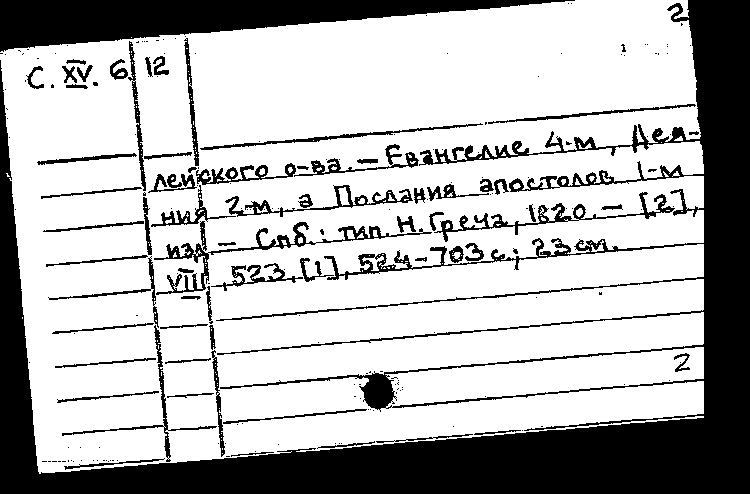 2
С. XV. 6. 12
лейского о-ва. — Евангелие 4-м, Дея-
ния 2-м, а Послания апостолов 1-м
изд. — Спб.: тип. Н. Греча, 1820. — [2],
VIII, 523, [1], 524-703 с.; 23 см.
2